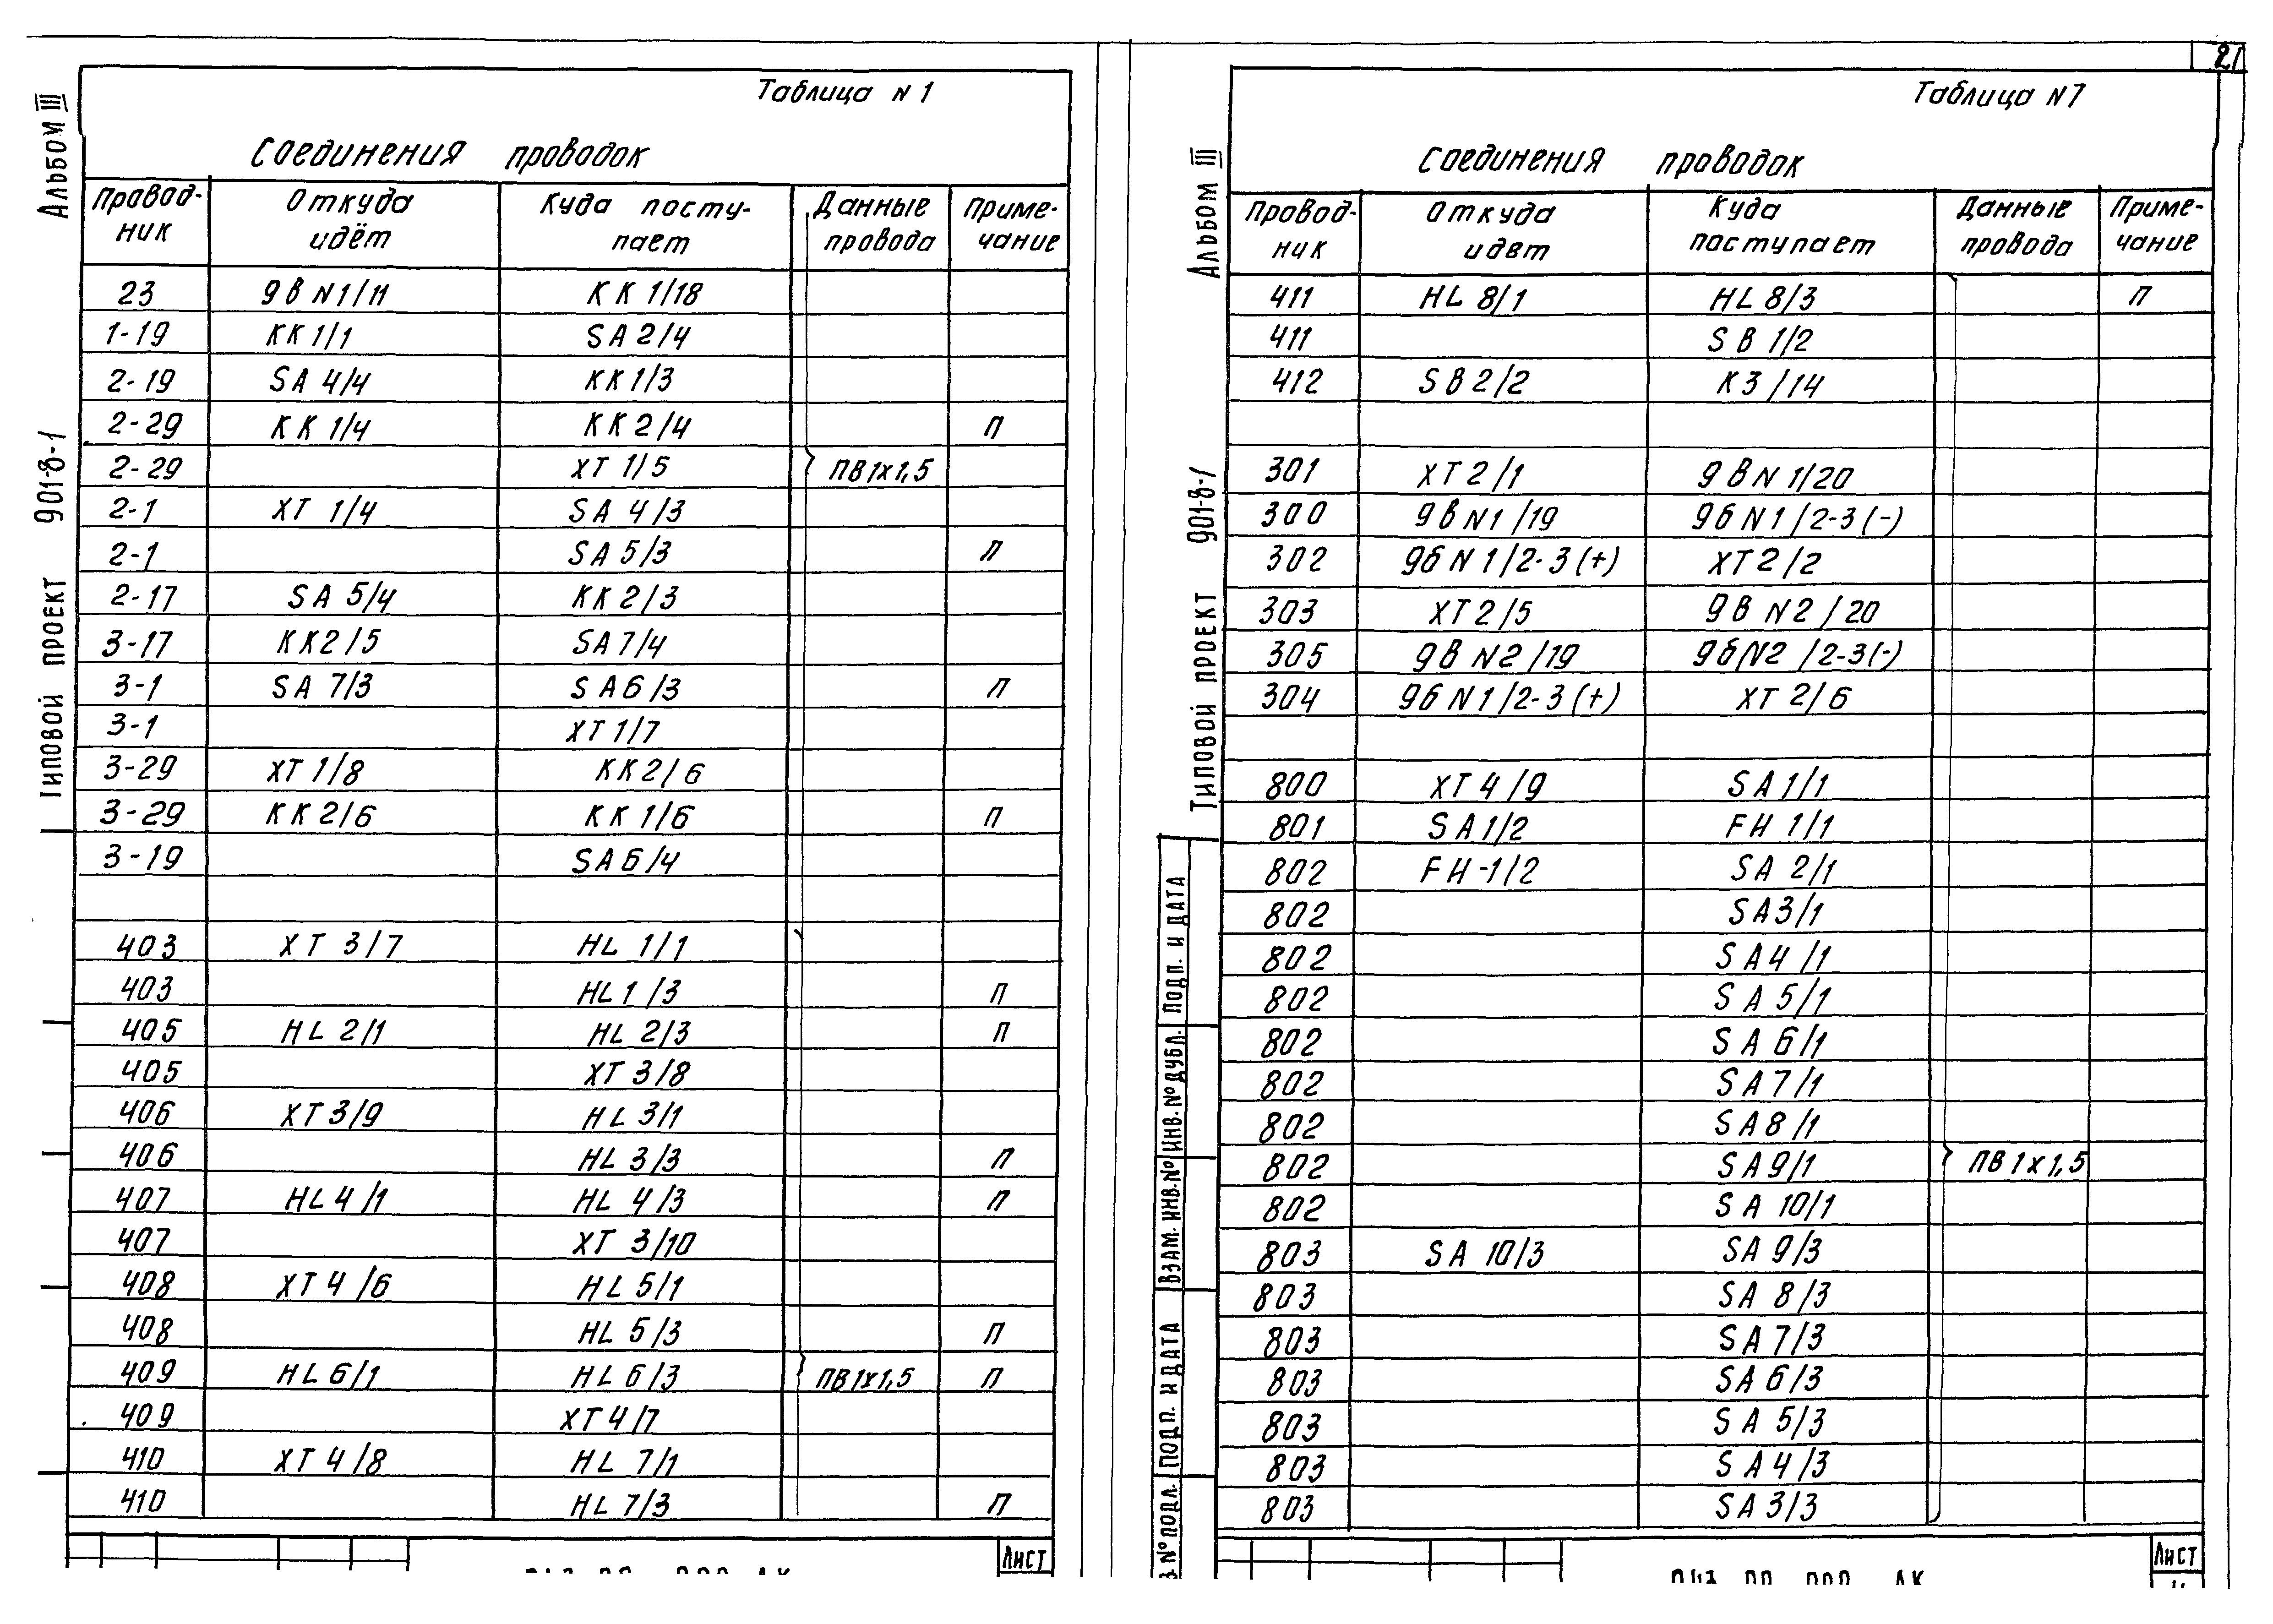 21
Альбом III
Типовой проект 901-8-1
Таблица N 1
Соединения проводок
Провод-ник Откуда идёт Куда посту-пает Данные провода Приме-чание
23 9в N1/11 КК 1/18
1-19 КК 1/1 SA 2/4
2-19 SA 4/4 КК 1/3
2-29 КК 1/4 КК 2/4 П
2-29 ХТ 1/5 ПВ1х1,5
2-1 ХТ 1/4 SA 4/3
2-1 SA 5/3 П
2-17 SA 5/4 КК 2/3
3-17 КК2/5 SA7/4
3-1 SA 7/3 SA6/3 П
3-1 ХТ 1/7
3-29 ХТ 1/8 КК2/6
3-29 КК2/6 КК 1/6 П
3-19 SA6/4
403 ХТ 3/7 HL 1/1
403 HL 1/3 П
405 HL 2/1 HL 2/3 П
405 ХТ 3/8
406 ХТ3/9 HL 3/1
406 HL 3/3 П
407 HL 4/1 HL 4/3 П
407 ХТ 3/10
408 ХТ 4/6 HL 5/1
408 HL 5/3 П
409 HL6/1 HL 6/3 ПВ1х1,5 П
409 ХТ4/7
410 ХТ 4/8 HL 7/1
410 HL 7/3 П
Лист
Альбом III
Типовой проект 901-8-1
Таблица N7
Соединения проводок
Провод-ник Откуда идет Куда поступает Данные провода Приме-чание
411 HL 8/1 HL 8/3 П
411 SB 1/2
412 SB2/2 К3/14
301 ХТ2/1 9вN 1/20
300 9вN1/19 9бN1/2-3(-)
302 9бN1/2-3(+) ХТ2/2
303 ХТ2/5 9в N2/20
305 9в N2/19 9бN2/2-3(-)
304 9бN1/2-3(+) ХТ 2/6
800 ХТ 4/9 SA 1/1
801 SA1/2 FH 1/1
802 FH-1/2 SA 2/1
802 SA3/1
802 SA4/1
802 SA 5/1
802 SA 6/1
802 SA7/1
802 SA8/1
802 SA9/1 ПВ1х1,5
802 SA 10/1
803 SA 10/3 SA 9/3
803 SA 8/3
803 SA 7/3
803 SA 6/3
803 SA 5/3
803 SA 4/3
803 SA 3/3
Подп. и дата
Инв. № дубл.
Взам. инв. №
Подп. и дата
№ подл.
Лист